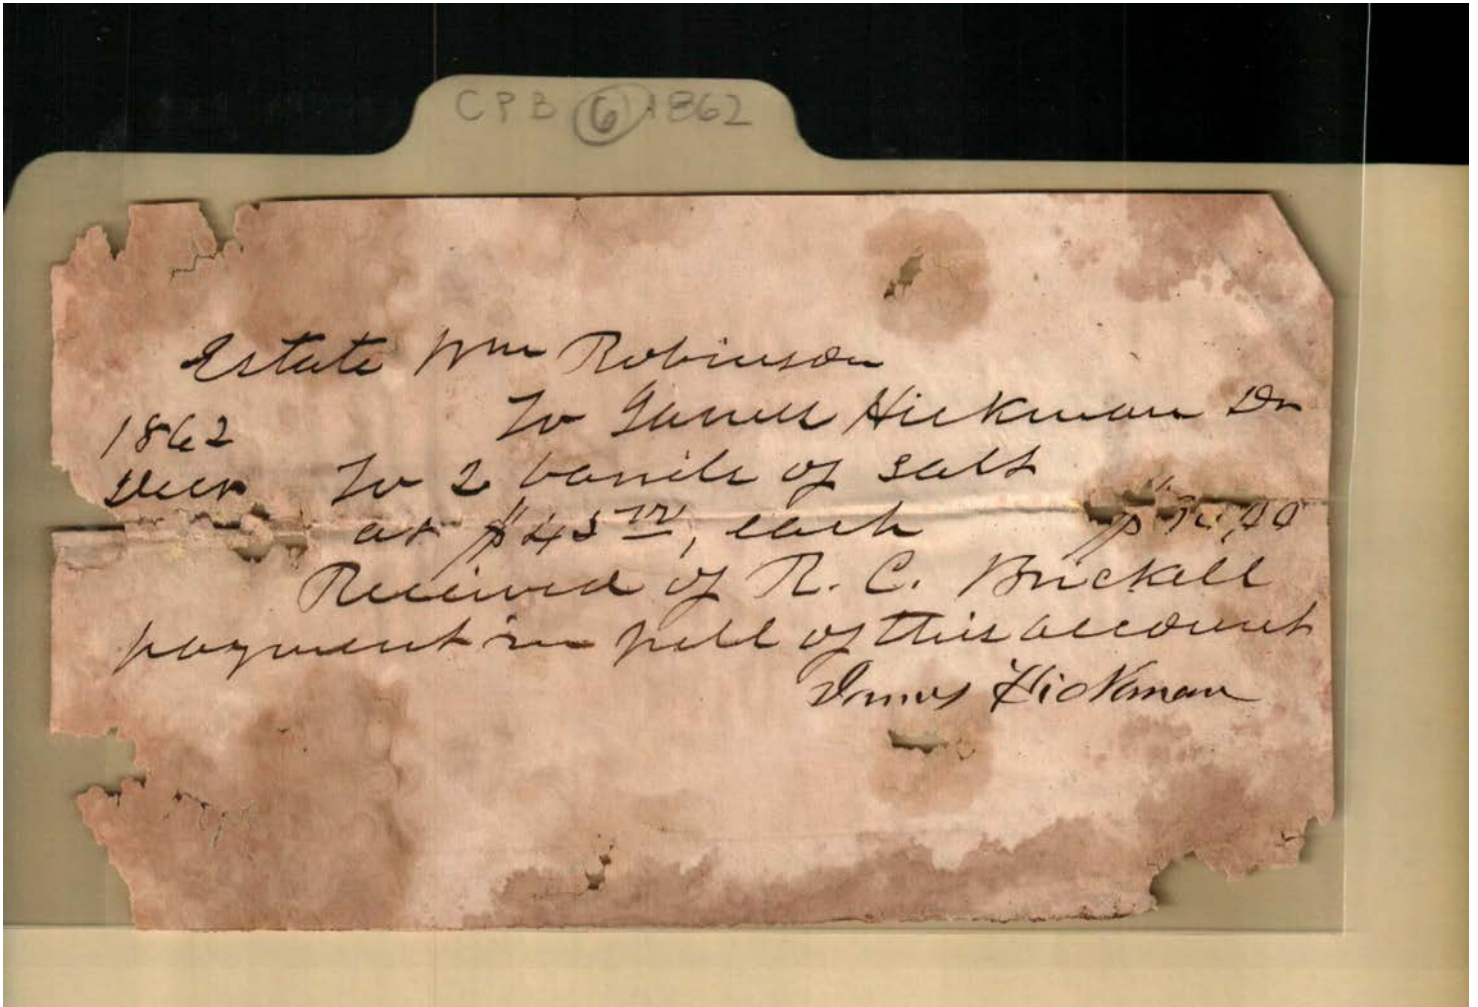 CPB 6 1862
Estate Wm Robinson
To James Hickman Dr
1862
Decr To 2 barrels of salt
at $45.00, each $90,00
Received of R. C. Brickell
payment in full of this account
James Hickman